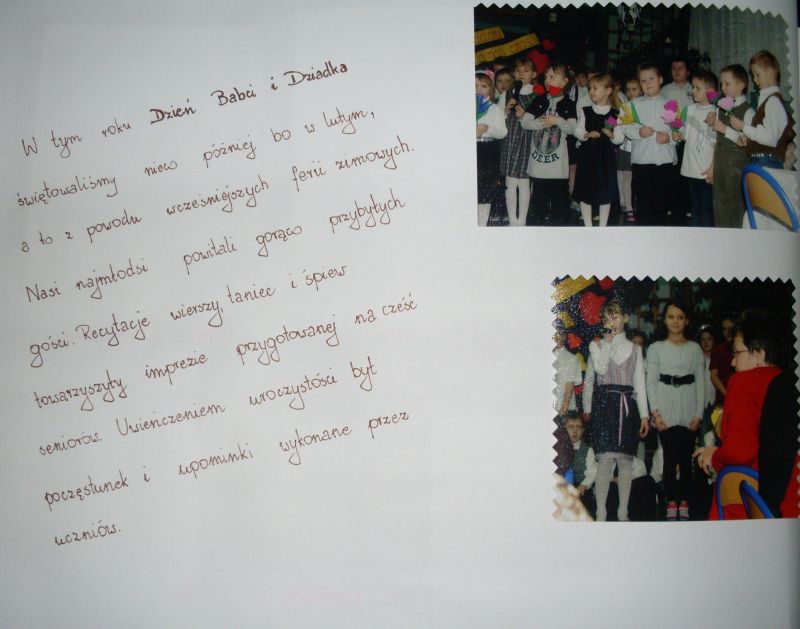 W tym roku Dzień Babci i Dziadka
świętowaliśmy nieco później bo w lutym,
a to z powodu wcześniejszych ferii zimowych.
Nasi najmłodsi powitali gorąco przybyłych
gości. Recytacje wierszy, taniec i śpiew
towarzyszyły imprezie przygotowanej na cześć
seniorów. Uwieńczeniem uroczystości był
poczęstunek i upominki wykonane przez
uczniów.
DEER